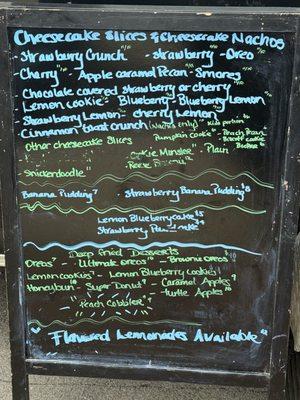 Cheesecake Slices & Cheesecake Nachos
-Strawberry Crunch - strawberry -Oreo
-Cherry - Apple caramel Pecan -Smores
Chocolate covered strawberry or cherry
Lemon cookie - Blueberry - Blueberry Lemon
-Strawberry Lemon - cherry Lemon
-Cinnamon toast crunch (Nachos only)
Other cheesecake Slices Pumpkin Cookie
-Cookie Monster - Plain
Snickerdoodle -Reese
Banana Pudding 7 Strawberry Banana Pudding 8
Lemon Blueberry cake
Strawberry
Deep fried Desserts
Oreos - Ultimate Oreos - Brownie Oreos
Lemon cookies - Lemon Blueberry cookies
Honeybun - Super Donut - Caramel Apples
-Turtle Apples
Peach Cobbler
Flavored Lemonades Available